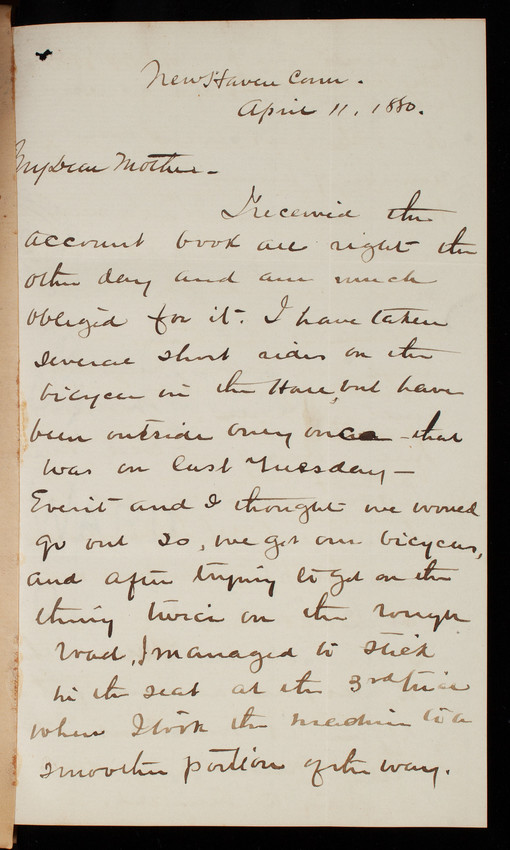 New Haven Conn.
April 11, 1880.
My Dear Mother—
I received the
account book all right the
other day and am much
obliged for it. I have taken
several short rides on the
bicycle in the Hall, but have
been outside only once — that
was on last Tuesday —
Everit and I thought we would
go out so, we got our bicycles,
and after trying to get on the
thing twice on the rough
road, I managed to stick
in the seat at the 3rd trial
when I took the machine to a
smoother portion of the way.